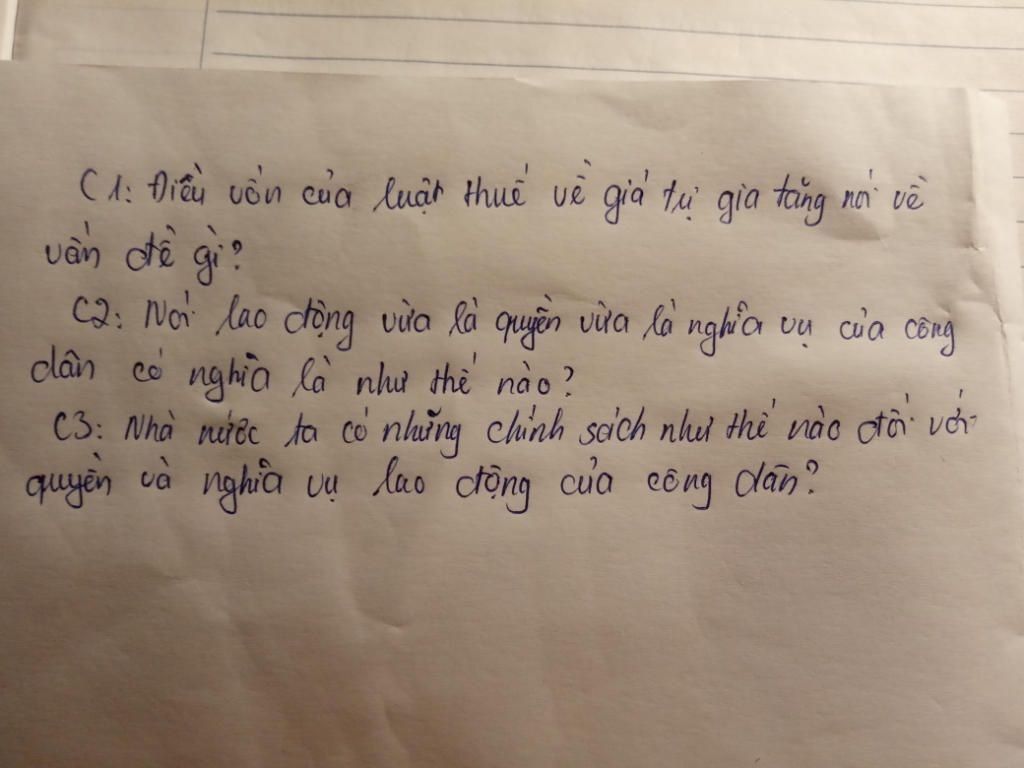 C1: Điều vốn của luật thuế về giá tự gia tăng nói về
vấn đề gì?
C2: Nói lao động vừa là quyền vừa là nghĩa vụ của công
dân có nghĩa là như thế nào?
C3: Nhà nước ta có những chính sách như thế nào đối với
quyền và nghĩa vụ lao động của công dân?